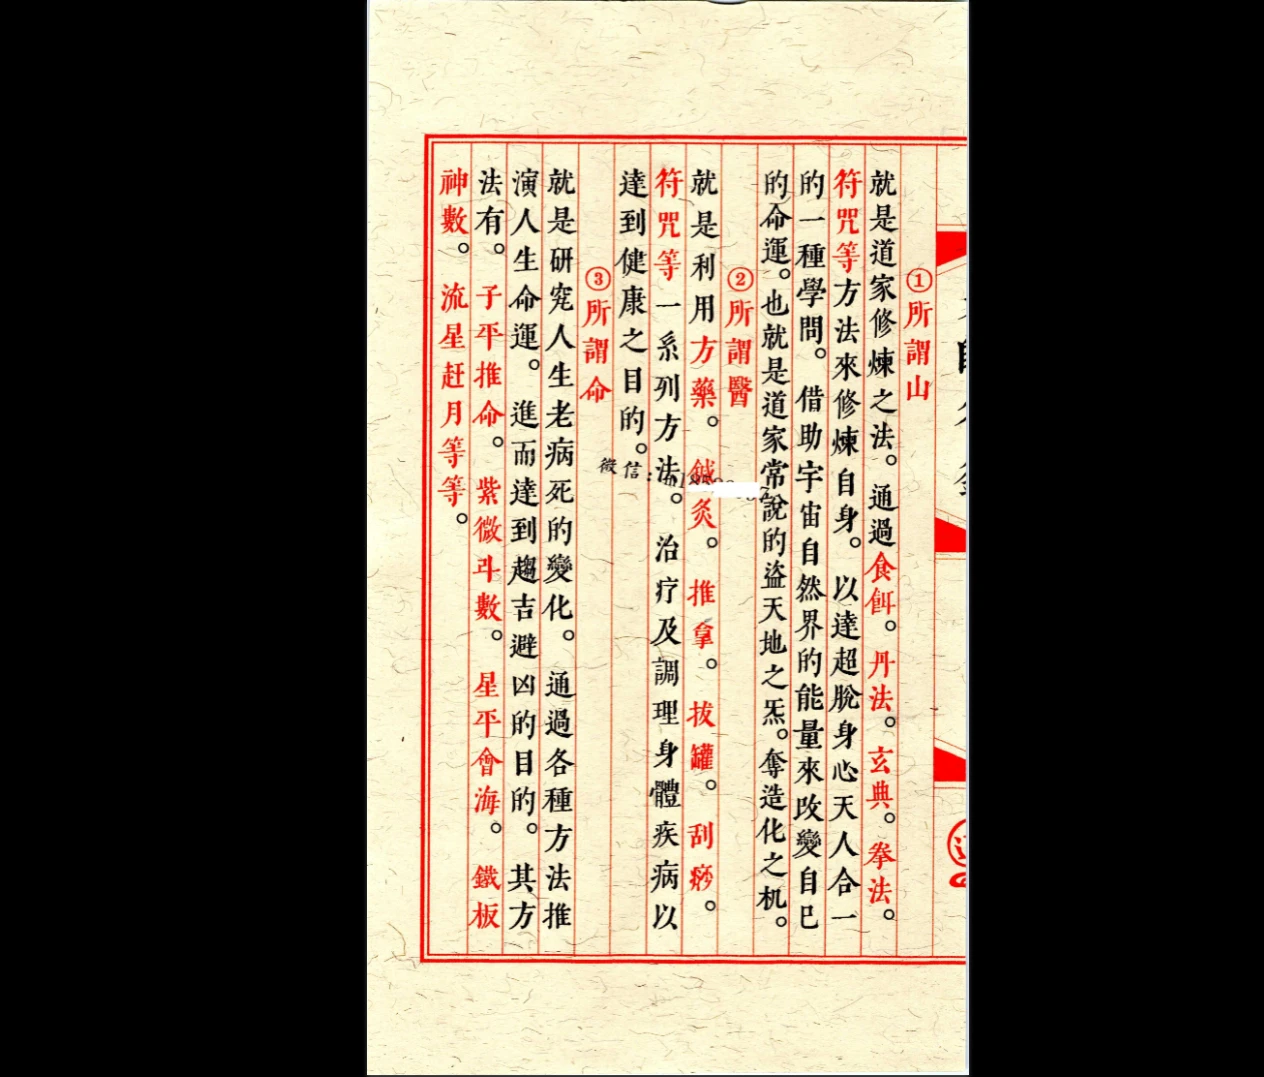 ①所謂山
就是道家修煉之法。通過食餌。丹法。玄典。拳法。
符咒等方法來修煉自身。以達超脫身心天人合一
的一種學問。借助宇宙自然界的能量來改變自己
的命運。也就是道家常說的盜天地之炁。奪造化之机。
②所謂醫
就是利用方藥。鍼灸。推拿。拔罐。刮痧。
符咒等一系列方法。治疗及調理身體疾病以
達到健康之目的。
③所謂命
就是研究人生老病死的變化。通過各種方法推
演人生命運。進而達到趨吉避凶的目的。其方
法有。子平推命。紫微斗數。星平會海。鐵板
神數。流星赶月等等。
微信: